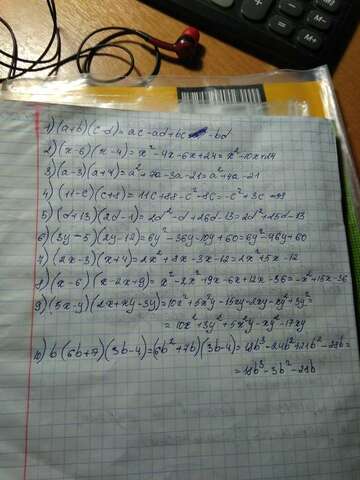 1) (a+b)(c-d)=ac-ad+bc-bd
2) (x-6)(x-4)=x²-4x-6x+24=x²-10x+24
3) (a-3)(a+7)=a²+7a-3a-21=a²+4a-21
4) (11-c)(c+8)=11c+88-c²-8c=-c²+3c+88
5) (d+13)(2d-1)=2d²-d+26d-13=2d²+25d-13
6) (3y-5)(2y-12)=6y²-36y-10y+60=6y²-46y+60
7) (2x-3)(x+4)=2x²+8x-3x-12=2x²+5x-12
8) (x-6)(x-2x+9)=x²-2x²+9x-6x+12x-36=-x²+15x-36
9) (5x-y)(2x+xy-3y)=10x²+5x²y-15xy-2xy-xy²+3y²=
=10x²+3y²+5x²y-xy²-17xy
10) b(6b+7)(3b-4)=(6b²+7b)(3b-4)=18b³-24b²+21b²-28b=
=18b³-3b²-28b